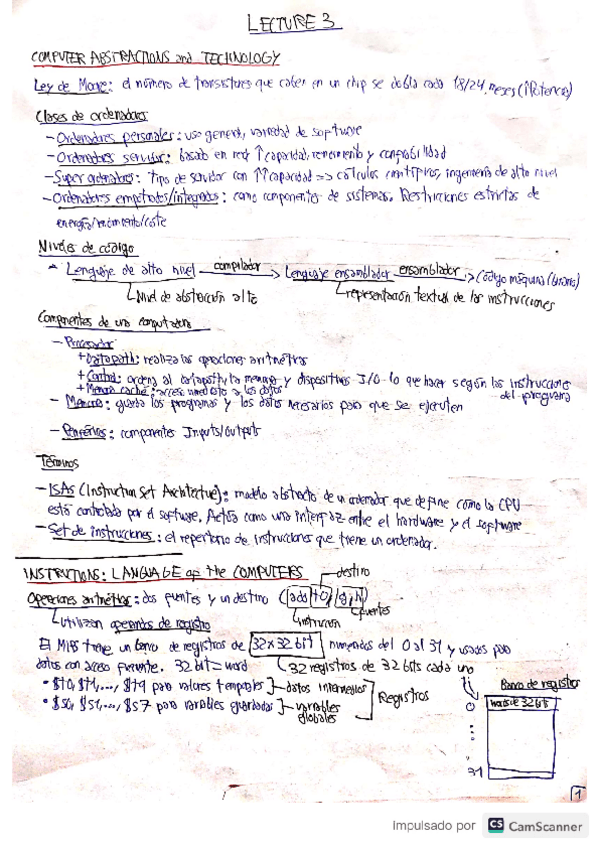 LECTURE 3
COMPUTER ABSTRACTIONS and TECHNOLOGY
Ley de Moore: el número de transistores que caben en un chip se dobla cada 18/24 meses (↑Potencia)
Clases de ordenadores
- Ordenadores personales: uso general, variedad de software
- Ordenadores servidor: basado en red ↑capacidad, rendimiento y confiabilidad
- Super ordenadores: tipo de servidor con ↑↑capacidad => cálculos científicos, ingeniería de alto nivel
- Ordenadores empotrados/integrados: como componentes de sistemas. Restricciones estrictas de
energía/rendimiento/coste
Niveles de código
- Lenguaje de alto nivel compilador → Lenguaje ensamblador ensamblador → Código máquina (binario)
Nivel de abstracción alto representación textual de las instrucciones
Componentes de una computadora
- Procesador
+ Datapath: realiza las operaciones aritméticas
+ Control: ordena al datapath, la memoria y dispositivos I/O lo que hacer según las instrucciones
del programa
+ Memoria caché: acceso inmediato a los datos
- Memoria: guarda los programas y los datos necesarios para que se ejecuten
- Periféricos: componentes Inputs/outputs
Términos
- ISAs (Instruction Set Architecture): modelo abstracto de un ordenador que define como la CPU
está controlada por el software. Actúa como una interfaz entre el hardware y el software
- Set de instrucciones: el repertorio de instrucciones que tiene un ordenador.
INSTRUCTIONS: LANGUAGE of the COMPUTERS
destino
Operaciones aritméticas: dos fuentes y un destino (add f0, g, h)
fuentes
instrucción
Utilizan operandos de registro
El MIPS tiene un banco de registros de 32x32 bit numerados del 0 al 31 y usados para
datos con acceso frecuente. 32 bit = word 32 registros de 32 bits cada uno
• $t0, $t1, ..., $t9 para valores temporales datos intermedios
• $s0, $s1, ..., $s7 para variables guardadas variables
globales
Registros
Banco de registros
0
words de 32 bits
31
1
Impulsado por CS CamScanner